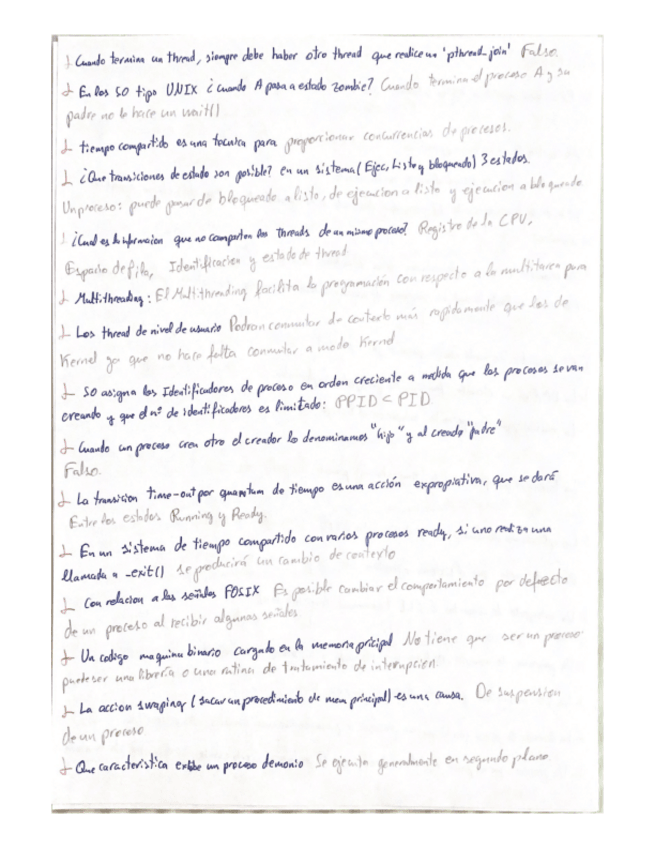 Cuando termina un thread, siempre debe haber otro thread que realice un 'pthread_join' Falso.
En los SO tipo UNIX ¿cuando A pasa a estado zombie? Cuando termina el proceso A y su
padre no le hace un wait()
tiempo compartido es una tecnica para proporcionar concurrencias de procesos.
¿Que transiciones de estado son posible? en un sistema (Ejec, Listo y bloqueado) 3 estados.
Un proceso: puede pasar de bloqueado a listo, de ejecucion a listo y ejecucion a bloqueado
¿Cual es la informacion que no comparten los threads de un mismo proceso? Registro de la CPU,
Espacio de pila, Identificacion y estado de thread
Multithreading: El Multithreading facilita la programación con respecto a la multitarea pura
Los thread de nivel de usuario Podran conmutar de contexto más rapidamente que los de
Kernel ya que no hace falta conmutar a modo Kernel
SO asigna los Identificadores de proceso en orden creciente a medida que los procesos se van
creando y que el nº de identificadores es limitado: PPID < PID
Cuando un proceso crea otro el creador lo denominamos "hijo" y al creado "padre"
Falso.
La transicion time-out por quantum de tiempo es una acción expropiativa, que se dará
Entre los estados Running y Ready.
En un sistema de tiempo compartido con varios procesos ready, si uno realiza una
llamada a _exit() se producirá un cambio de contexto
Con relacion a las señales POSIX Es posible cambiar el comportamiento por defecto
de un proceso al recibir algunas señales
Un codigo maquina binario cargado en la memoria pricipal No tiene que ser un proceso
puede ser una librería o una rutina de tratamiento de interrupcion
La accion swaping (sacar un procedimiento de mem principal) es una causa. De suspension
de un proceso
Que caracteristica exibe un proceso demonio Se ejecuta generalmente en segundo plano